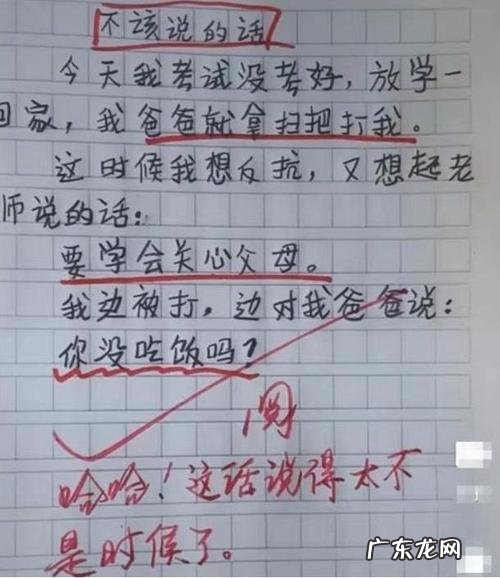 不该说的话
今天我考试没考好，放学一
回家，我爸爸就拿扫把打我。
这时候我想反抗，又想起老
师说的话：
要学会关心父母。
我边被打，边对我爸爸说：
你没吃饭吗？
阅
哈哈！这话说得太不
是时候了。
广东龙网